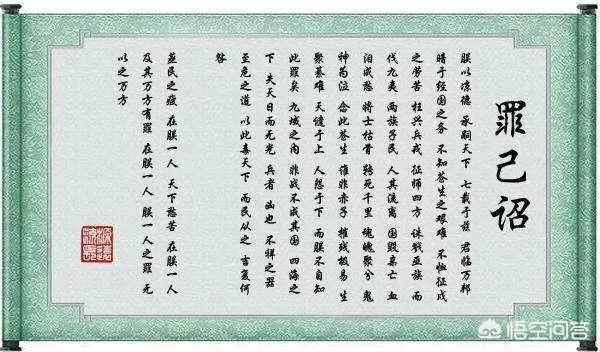 罪己诏
朕以凉德 承嗣天下 七载于兹 君临万邦
暗于经国之务 不知苍生之艰难 不恤征戍
之劳苦 枉兴兵戎 征师四方 诛戮亚族 而
伐九夷 两族子民 人其流离 国毁弃亡 血
泪成愁 将士枯骨 骑死千里 魂魄聚兮 鬼
神药泣 念此苍生 谁非赤子 摧残极易 生
聚甚难 天谴于上 人怨于下 而朕不自知
此罪矣 九域之内 非战不成其国 四海之
下 失天日而无光 兵者 凶也 不祥之器
至危之道 以此毒天下 而民从之 言复何
咎
民之疲 在朕一人 天下愁苦 在朕一人
及其万方有罪 在朕一人 朕一人之罪 无
以之万方
悟空问答